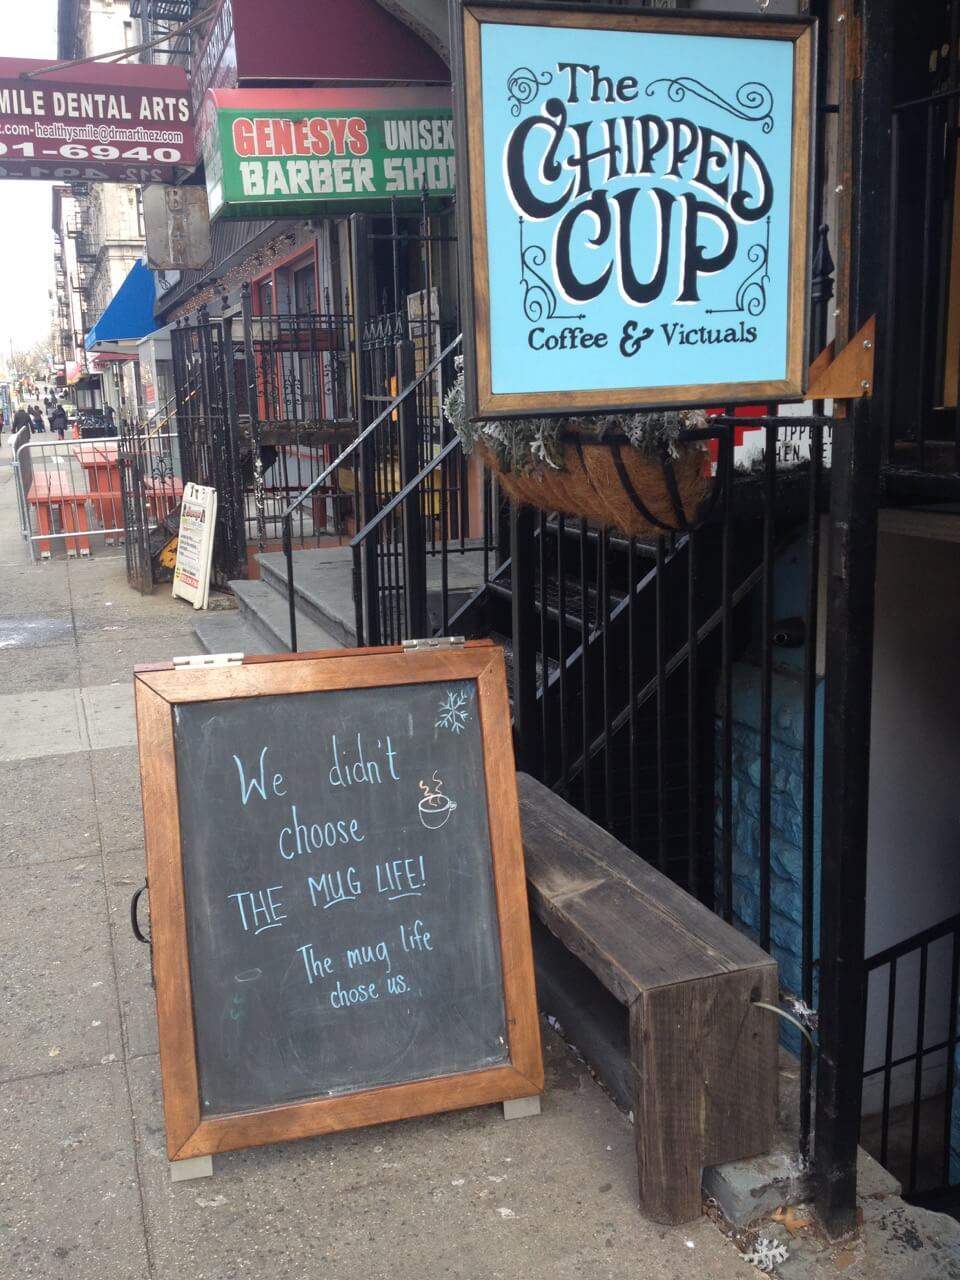 MILE DENTAL ARTS
.com-healthysmile@drmartinez.com
91-6940
GENESYS UNISEX
BARBER SHOP
The
CHIPPED
CUP
Coffee & Victuals
We didn't
choose
THE MUG LIFE!
The mug life
chose us.